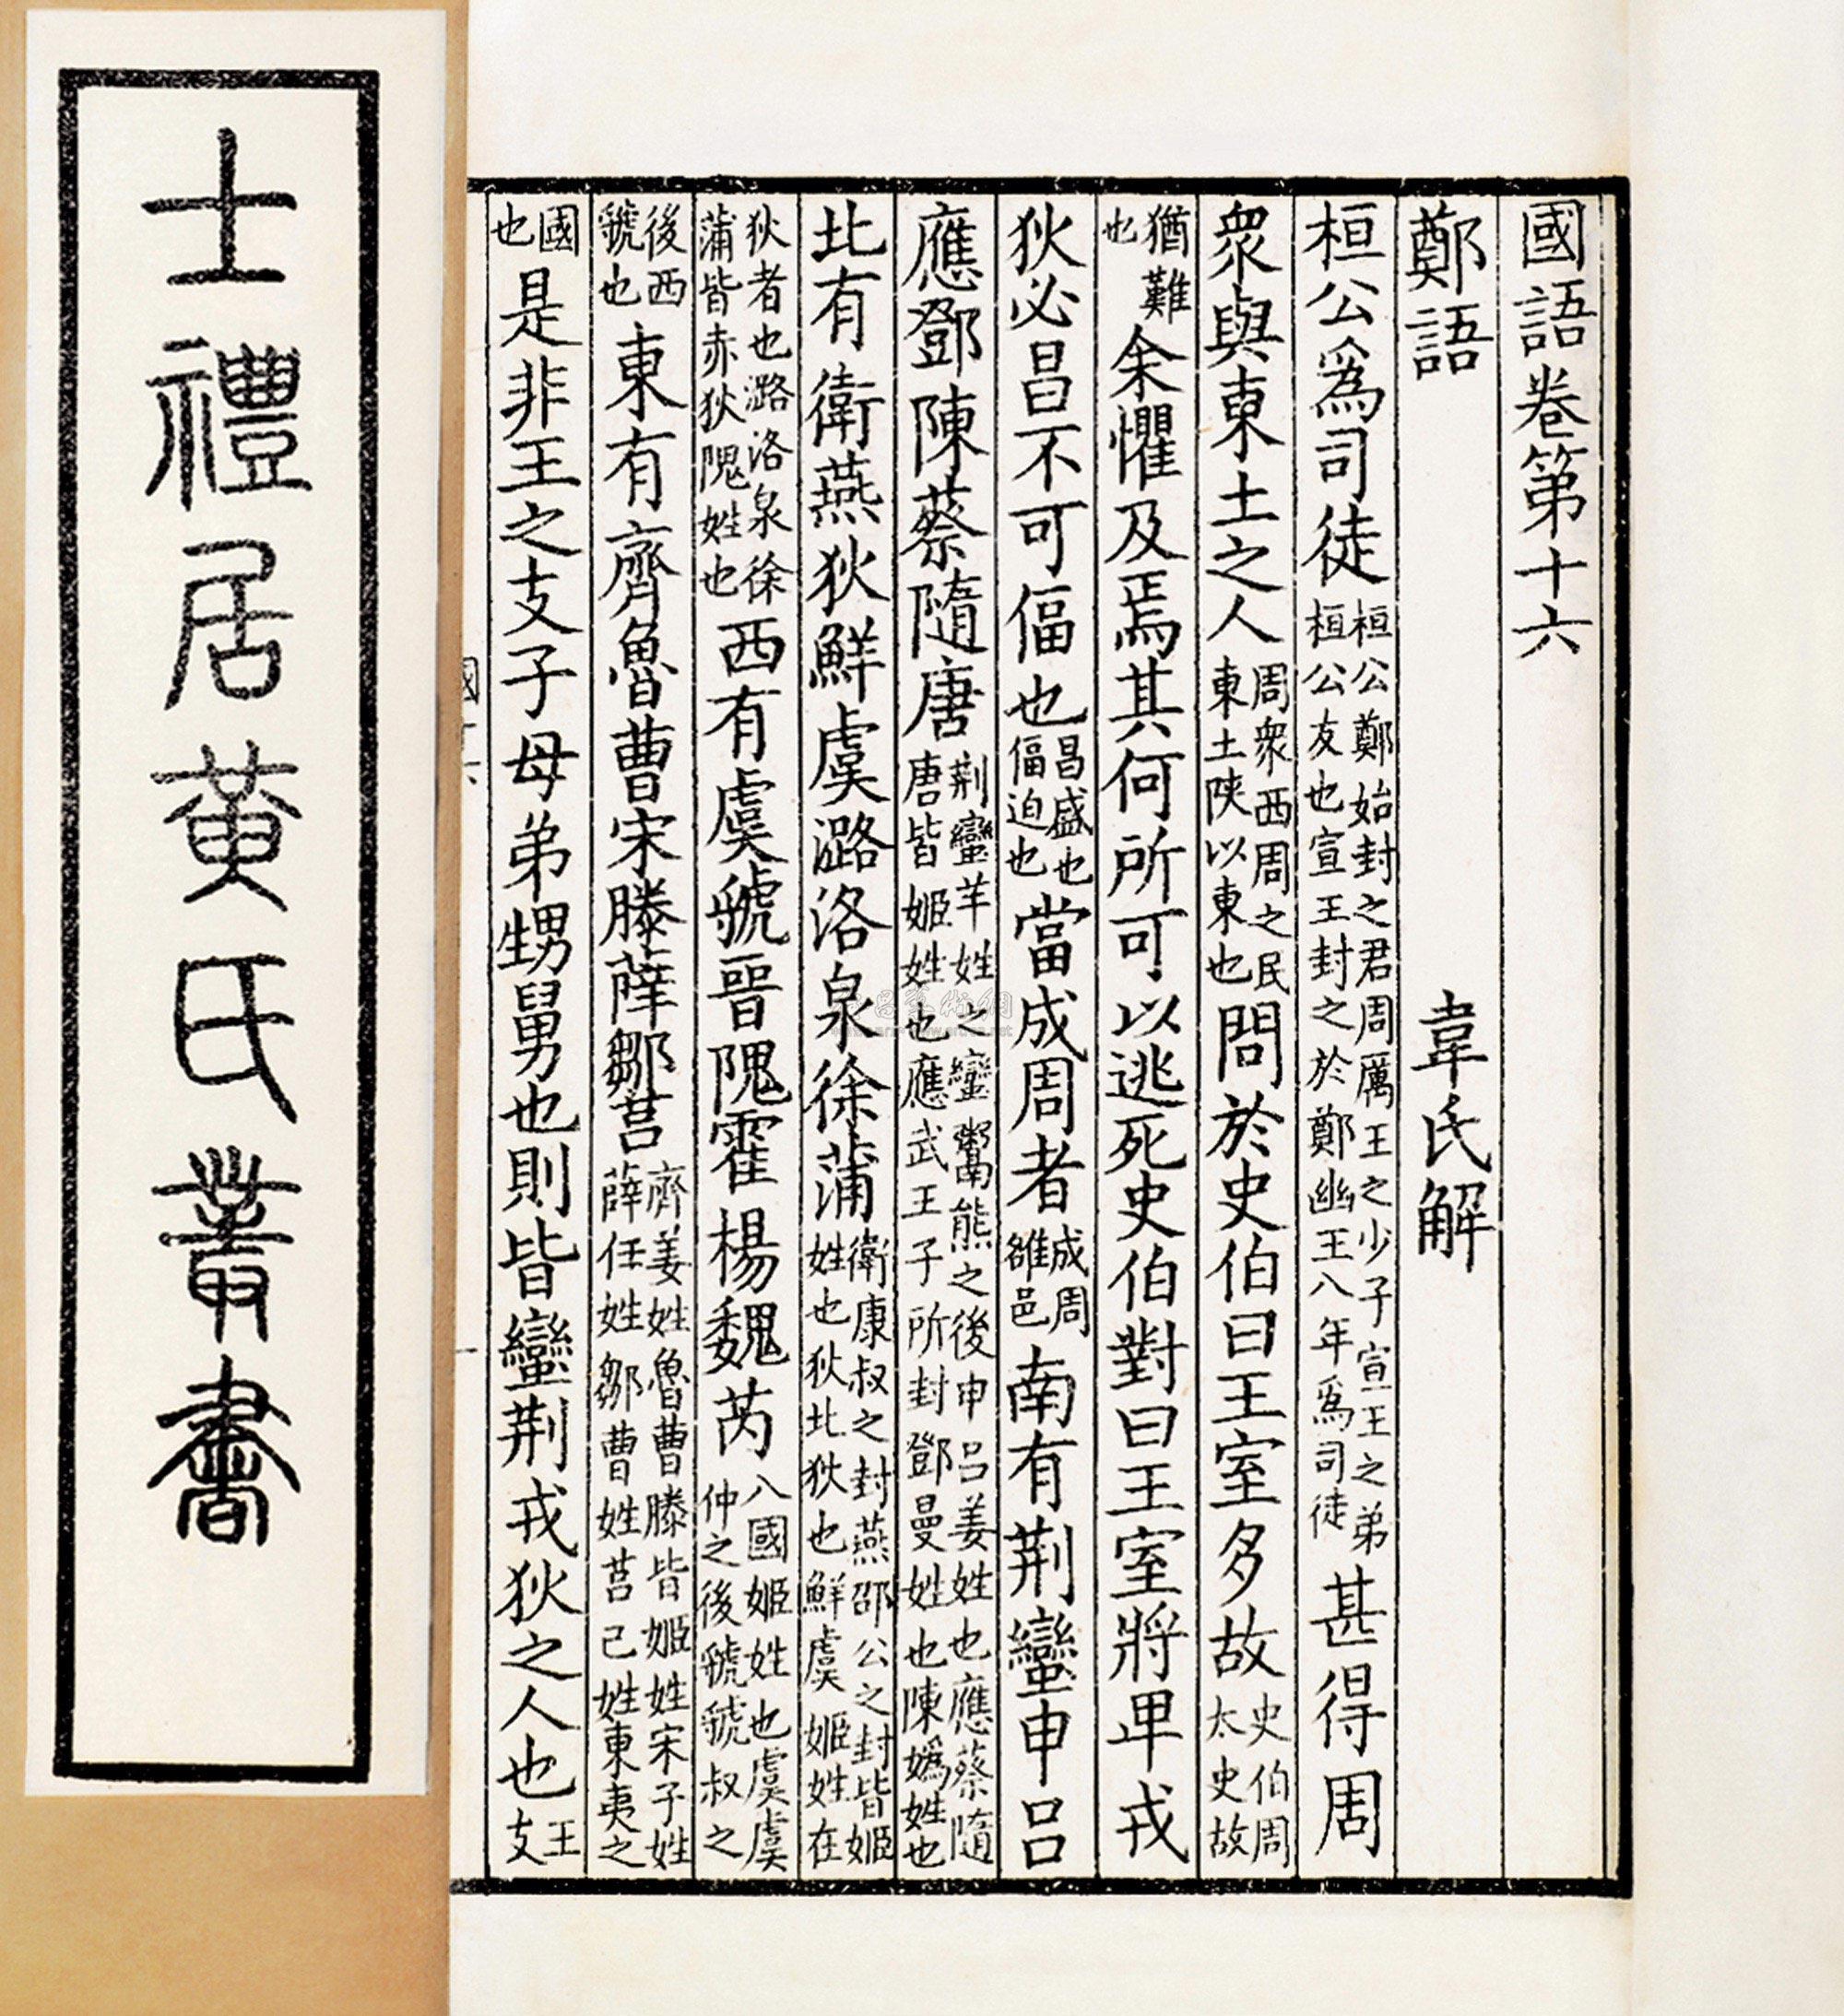 國語卷第十六
鄭語
韋氏解
桓公爲司徒桓公鄭始封之君周厲王之少子宣王之弟桓公友也宣王封之於鄭幽王八年爲司徒甚得周
衆與東土之人周衆西周之民東土陝以東也問於史伯曰王室多故史伯周太史故
猶難也余懼及焉其何所可以逃死史伯對曰王室將卑戎
狄必昌不可偪也昌盛也偪迫也當成周者成周雒邑南有荆蠻申吕
應鄧陳蔡隨唐荆蠻羋姓之蠻鬻熊之後申吕姜姓也應蔡隨唐皆姬姓也應武王子所封鄧曼姓也陳嬀姓也
北有衛燕狄鮮虞潞洛泉徐蒲衛康叔之封燕邵公之封皆姬姓也狄北狄也鮮虞姬姓在
狄者也潞洛泉徐蒲皆赤狄隗姓也西有虞虢晉隗霍楊魏芮八國姬姓也虞虞仲之後虢虢叔之
後西虢也東有齊魯曹宋滕薛鄒莒齊姜姓魯曹滕皆姬姓宋子姓薛任姓鄒曹姓莒己姓東夷之
國也是非王之支子母弟甥舅也則皆蠻荆戎狄之人也王支
士禮居黄氏叢書